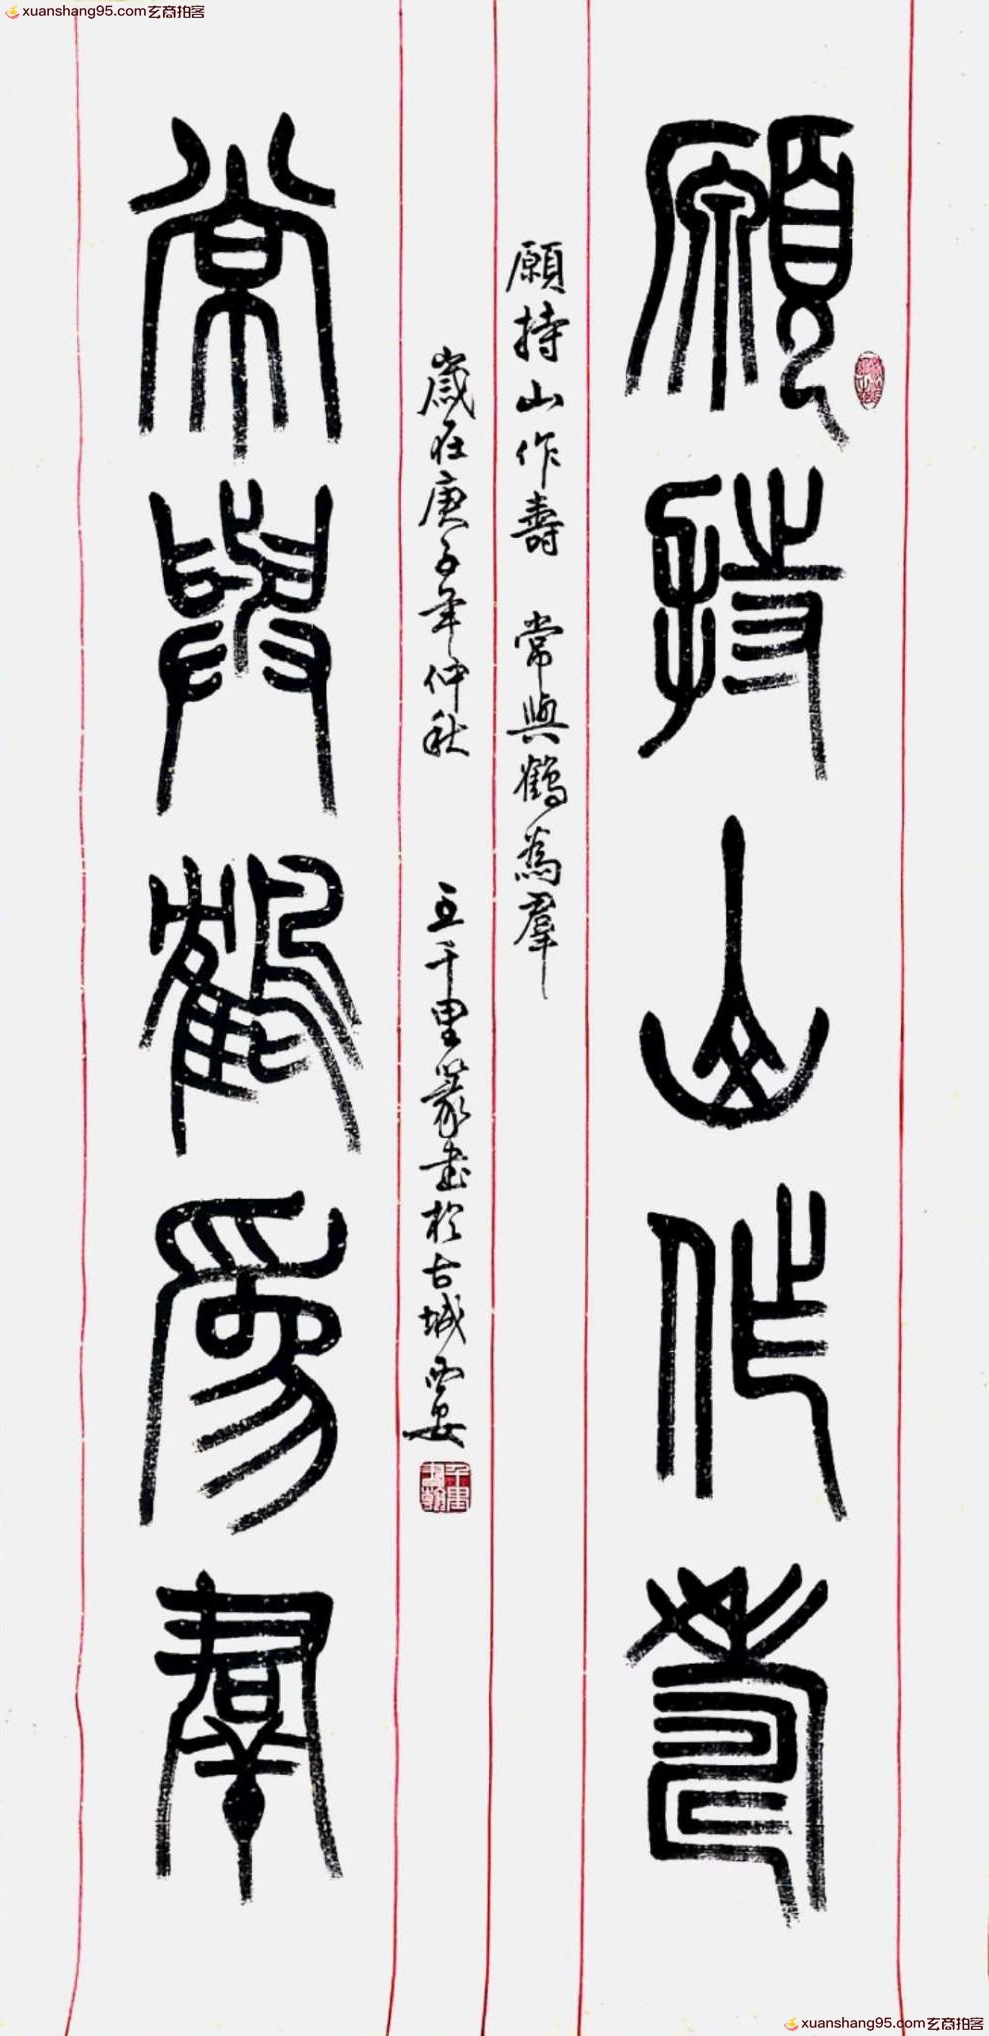 xuanshang95.com玄商拍客
願持山作壽
願持山作壽 常與鶴為羣
歲在庚子年仲秋 王千里篆書於古城西安
常與鶴為羣
xuanshang95.com玄商拍客